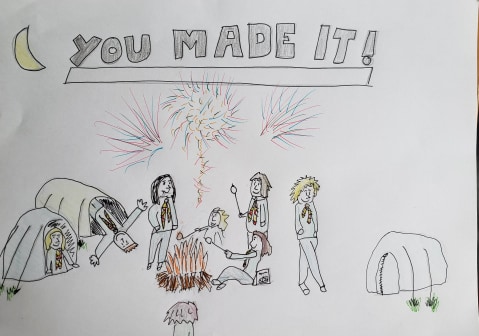 YOU MADE IT!